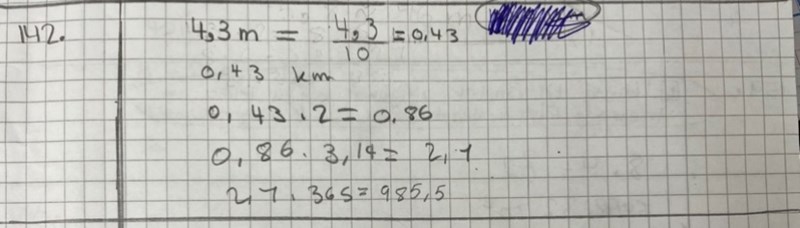 142.
4,3 m = 4,3/10 = 0,43
0,43 km
0,43 . 2 = 0,86
0,86 . 3,14 = 2,7
2,7 . 365 = 985,5